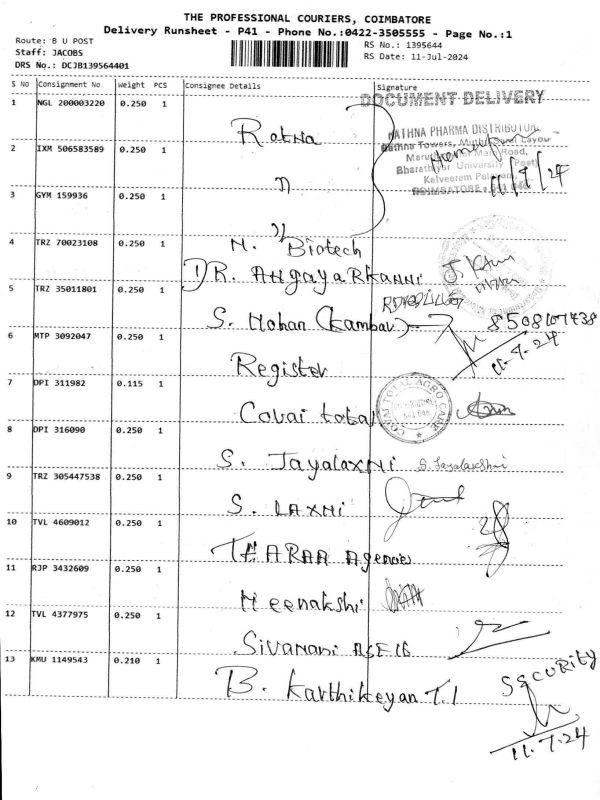 THE PROFESSIONAL COURIERS, COIMBATORE
Delivery Runsheet - P41 - Phone No.:0422-3505555 - Page No.:1
Route: B U POST
Staff: JACOBS
DRS No.: DCJB139564401
RS No.: 1395644
RS Date: 11-Jul-2024
S No Consignment No Weight PCS Consignee Details Signature
DOCUMENT DELIVERY
1 NGL 200003220 0.250 1 Ratna
RATHNA PHARMA DISTRIBUTOR
Rathna Towers, Layou
Road,
Bharathiyar University Post
Kalveerampalayam
COIMBATORE
2 IXM 506583589 0.250 1 "
11/7/24
3 GYM 159936 0.250 1 "
4 TRZ 70023108 0.250 1 N. Biotech
DR. Angayarkanni
5 TRZ 35011801 0.250 1 S. Mohan (Kambar)
8508107438
11-7-24
6 MTP 3092047 0.250 1 Register
7 DPI 311982 0.115 1 Covai total
COVAI TOTAL AGRO CARE
8 DPI 316090 0.250 1 S. Jayalaxmi S. Jayalakshmi
9 TRZ 305447538 0.250 1 S. LAXMI
10 TVL 4609012 0.250 1 THARAA Agencies
11 RJP 3432609 0.250 1 Meenakshi
12 TVL 4377975 0.250 1 Sivamani
13 KMU 1149543 0.210 1 B. Karthikeyan T.I
SECURITY
11-7-24